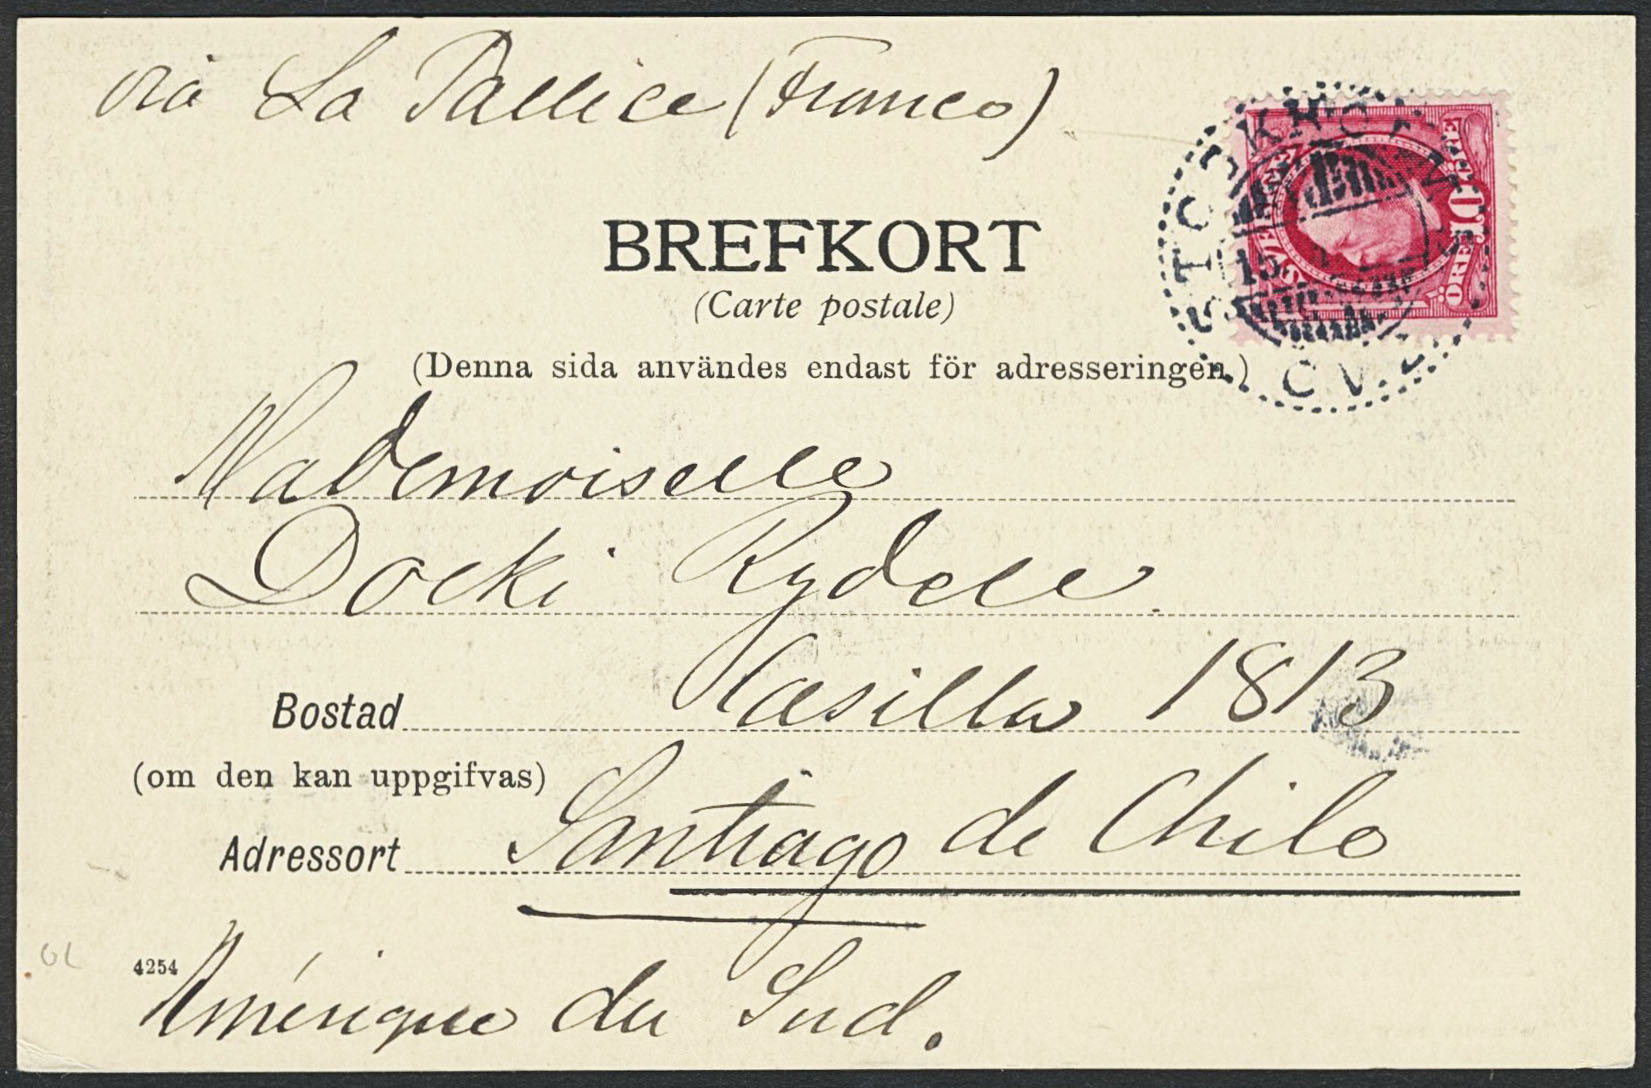 via La Pallice (France)
BREFKORT
(Carte postale)
(Denna sida användes endast för adresseringen.)
STOCKHOLM
15
C V.
SVERIGE
10 ÖRE
ÖRE
Mademoiselle
Docki Rydell
Bostad Casilla 1813
(om den kan uppgifvas)
Adressort Santiago de Chile
4254
Amérique du Sud.